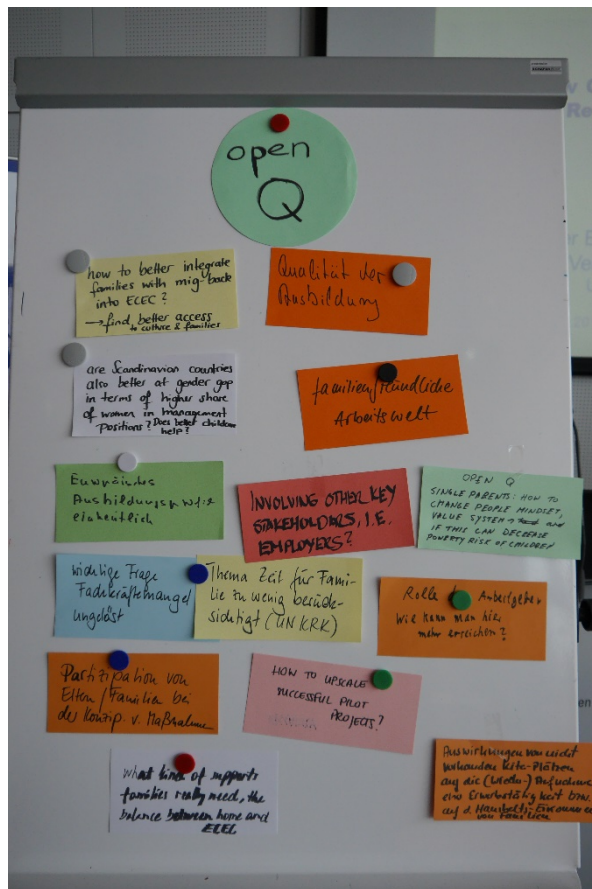 open
Q
how to better integrate
families with mig-back
into ECEC?
→ find better access
to culture & families
Qualität der
Ausbildung
are Scandinavian countries
also better at gender gap
in terms of higher share
of women in management
positions? Does better childcare
help?
familienfreundliche
Arbeitswelt
Ausbildungsprofile
einheitlich
INVOLVING OTHER KEY
STAKEHOLDERS, I.E.
EMPLOYERS?
OPEN Q
SINGLE PARENTS: HOW TO
CHANGE PEOPLE MINDSET,
VALUE SYSTEM → and
IF THIS CAN DECREASE
POVERTY RISK OF CHILDREN
wichtige Frage
Fachkräftemangel
ungelöst
Thema Zeit für Fami-
lie zu wenig berück-
sichtigt (UN KRK)
Rolle Arbeitgeber
wie kann man hier
mehr erreichen?
Partizipation von
Eltern/Familien bei
der Konzip. v. Maßnahme
HOW TO UPSCALE
SUCCESSFUL PILOT
PROJECTS?
what kind of supports
families really need, the
balance between home and
ECEC
Auswirkungen von nicht
vorhanden Kita-Plätzen
auf die (Wieder-) Aufnahme
eine Erwerbstätigkeit bzw.
auf d. Haushalts-Einkommen
von Familien